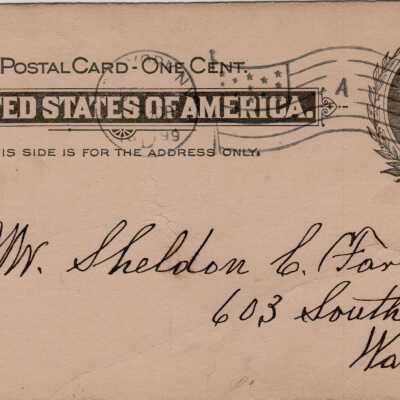 POSTAL CARD - ONE CENT.
ED STATES OF AMERICA.
IS SIDE IS FOR THE ADDRESS ONLY.
A
99
Mr. Sheldon C. Far
603 South
Wa